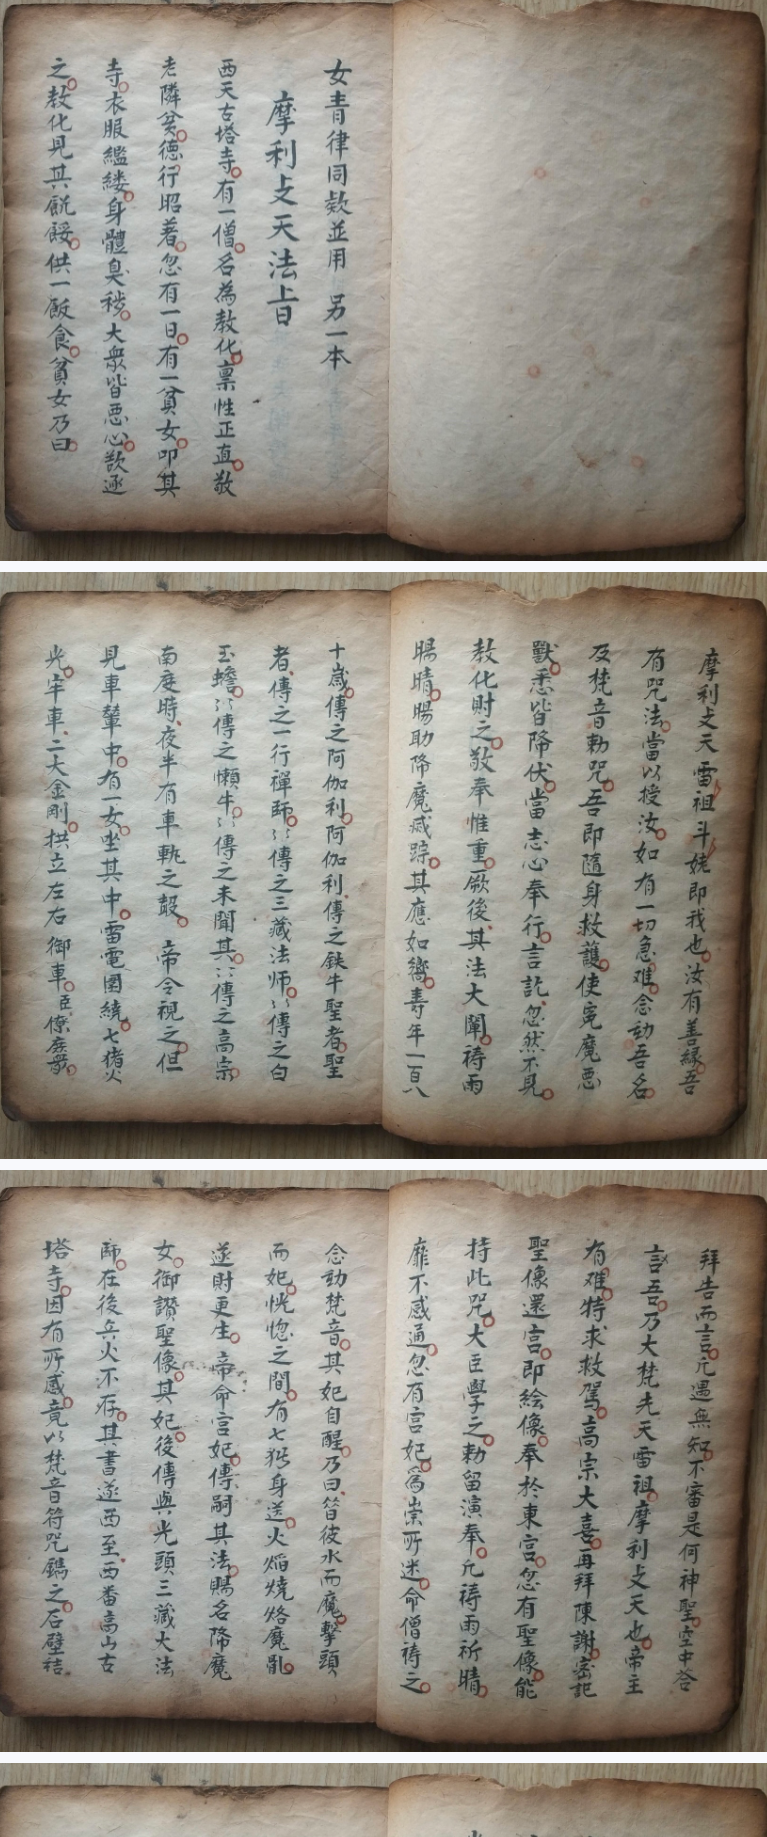 女青律同欵並用 另一本
摩利攴天法旨
西天古塔寺有一僧名為教化禀性正直敬
老隣貧德行昭著忽有一日有一貧女叩其
寺衣服繿縷身體臭穢大衆皆惡心欲逐
之教化見其飢餒供一飯食貧女乃曰
摩利攴天雷祖斗姥即我也汝有善緣吾
有咒法當以授汝如有一切急难念動吾名
及梵音勅咒吾即隨身救護使寃魔悪
獸悉皆降伏當志心奉行言訖忽然不見
教化財之敬奉惟重厥後其法大闡祷雨
暘晴賜助降魔滅踪其應如嚮壽年一百八
十歲傳之阿伽利阿伽利傳之鉄牛聖者聖
者傳之一行禪師〻傳之三藏法师〻傳之白
玉蟾〻傳之懶牛〻傳之未聞其〻傳之高宗
南庭時夜半有車軌之聲帝令視之但
見車輦中有一女坐其中雷電圍繞七猪火
光牢車二大金剛拱立左右御車臣僚庶衆
拜告而言凢遇無知不審是何神聖空中答
言吾乃大梵先天雷祖摩利攴天也帝主
有难特求救駕高宗大喜再拜陳謝密記
聖像還宫即绘像奉於東宫忽有聖像能
持此咒大臣學之勅留演奉凢祷雨祈晴
靡不感通忽有宫妃為祟所迷命僧祷之
念動梵音其妃自醒乃曰昔彼水而魔擊頭
而妃恍惚之間有七猪身送火焰燒烙魔亂
遂財更生帝命宫妃傳嗣其法賜名降魔
女御讚聖像其妃後傳與光頭三藏大法
師在後兵火不存其書遂西至西番高山古
塔寺因有所感竟以梵音符咒鐫之石壁